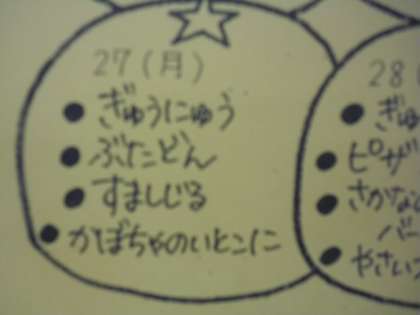 27(月)
●ぎゅうにゅう
●ぶたどん
●すましじる
●かぼちゃのいとこに
28
●ぎゅ
●ピザ
●さかなの
バー
●やさい